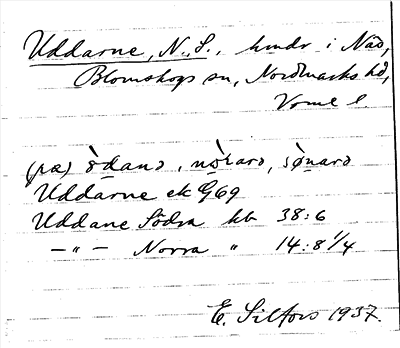 Uddarne, N., S., hmdr i Näs,
Blomskogs sn, Nordmarks hd,
Vrml l.
(pæ) ò̀danə, nò̀rarə, sø̀narə
Uddarne ek G69
Uddane Södra hb 38:6
—"— Norra " 14:8 1/4
E. Silfors 1937.